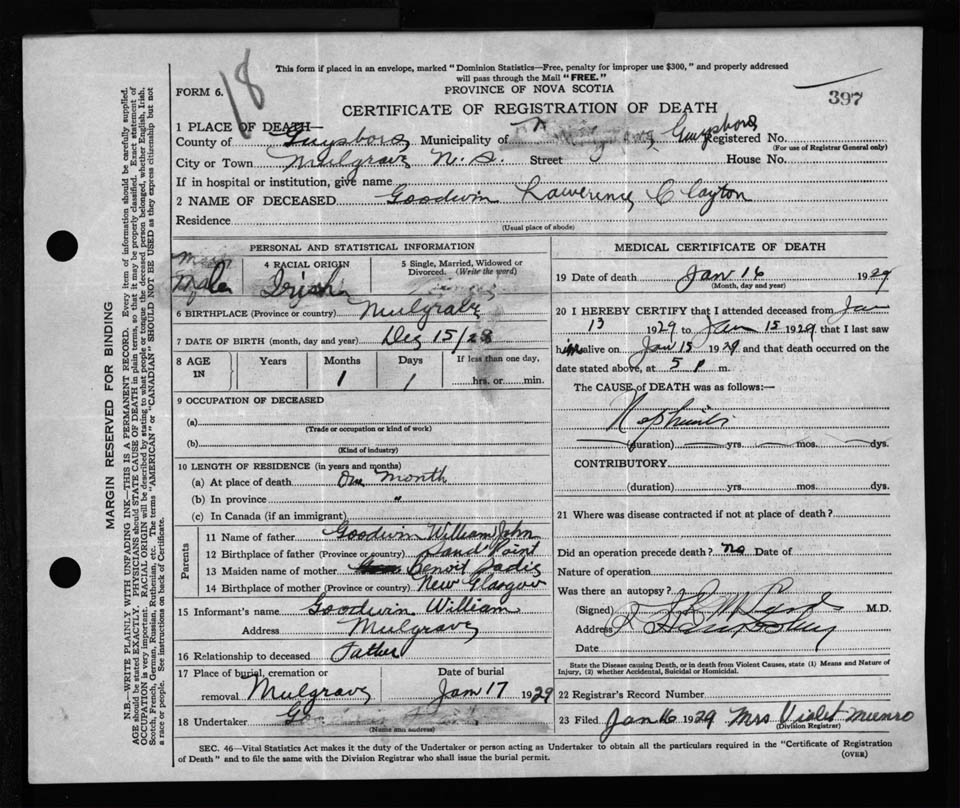 18
This form if placed in an envelope, marked "Dominion Statistics—Free, penalty for improper use $300," and properly addressed
will pass through the Mail "FREE."
FORM 6.
PROVINCE OF NOVA SCOTIA
397
CERTIFICATE OF REGISTRATION OF DEATH
1 PLACE OF DEATH—
County of Guysboro Municipality of Guysboro Registered No.
(For use of Registrar General only)
City or Town Mulgrave N. S. Street House No.
If in hospital or institution, give name
2 NAME OF DECEASED Goodwin Lawerence Clayton
Residence
(Usual place of abode)
PERSONAL AND STATISTICAL INFORMATION
Male
4 RACIAL ORIGIN
Irish
5 Single, Married, Widowed or
Divorced. (Write the word)
6 BIRTHPLACE (Province or country) Mulgrave
7 DATE OF BIRTH (month, day and year) Dec 15/28
8 AGE
IN
Years
Months
1
Days
1
If less than one day,
hrs. or min.
9 OCCUPATION OF DECEASED
(a)
(Trade or occupation or kind of work)
(b)
(Kind of industry)
10 LENGTH OF RESIDENCE (in years and months)
(a) At place of death One Month
(b) In province "
(c) In Canada (if an immigrant)
Parents
11 Name of father Goodwin William John
12 Birthplace of father (Province or country) Sand Point
13 Maiden name of mother Benoit Sadie
14 Birthplace of mother (Province or country) New Glasgow
15 Informant's name Goodwin William
Address Mulgrave
16 Relationship to deceased Father
17 Place of burial, cremation or
removal Mulgrave
Date of burial
Jan 17 1929
18 Undertaker
(Name and address)
MEDICAL CERTIFICATE OF DEATH
19 Date of death Jan 16 1929
(Month, day and year)
20 I HEREBY CERTIFY that I attended deceased from Jan
13 1929 to Jan 15 1929, that I last saw
him alive on Jan 15 1929 and that death occurred on the
date stated above, at 5 P m.
The CAUSE of DEATH was as follows:—
Nephritis
(duration) yrs. mos. dys.
CONTRIBUTORY
(duration) yrs. mos. dys.
21 Where was disease contracted if not at place of death?
Did an operation precede death? no Date of
Nature of operation
Was there an autopsy?
(Signed) M.D.
Address
Date
State the Disease causing Death, or in death from Violent Causes, state (1) Means and Nature of
Injury, (2) whether Accidental, Suicidal or Homicidal.
22 Registrar's Record Number
23 Filed Jan 16 1929 Mrs Violet Munro
(Division Registrar)
SEC. 46—Vital Statistics Act makes it the duty of the Undertaker or person acting as Undertaker to obtain all the particulars required in the "Certificate of Registration
of Death" and to file the same with the Division Registrar who shall issue the burial permit.
(OVER)
MARGIN RESERVED FOR BINDING
N.B.—WRITE PLAINLY WITH UNFADING INK—THIS IS A PERMANENT RECORD. Every item of information should be carefully supplied.
AGE should be stated EXACTLY. PHYSICIANS should STATE CAUSE OF DEATH in plain terms, so that it may be properly classified. Exact statement of
OCCUPATION is very important. RACIAL ORIGIN will be described by stating to what people or tongue the deceased person belonged, whether English, Irish,
Scotch, French, German, Russian, Ruthenian, etc. The terms "AMERICAN" or "CANADIAN" SHOULD NOT BE USED as they express citizenship but not
a race or people. See instructions on back of Certificate.